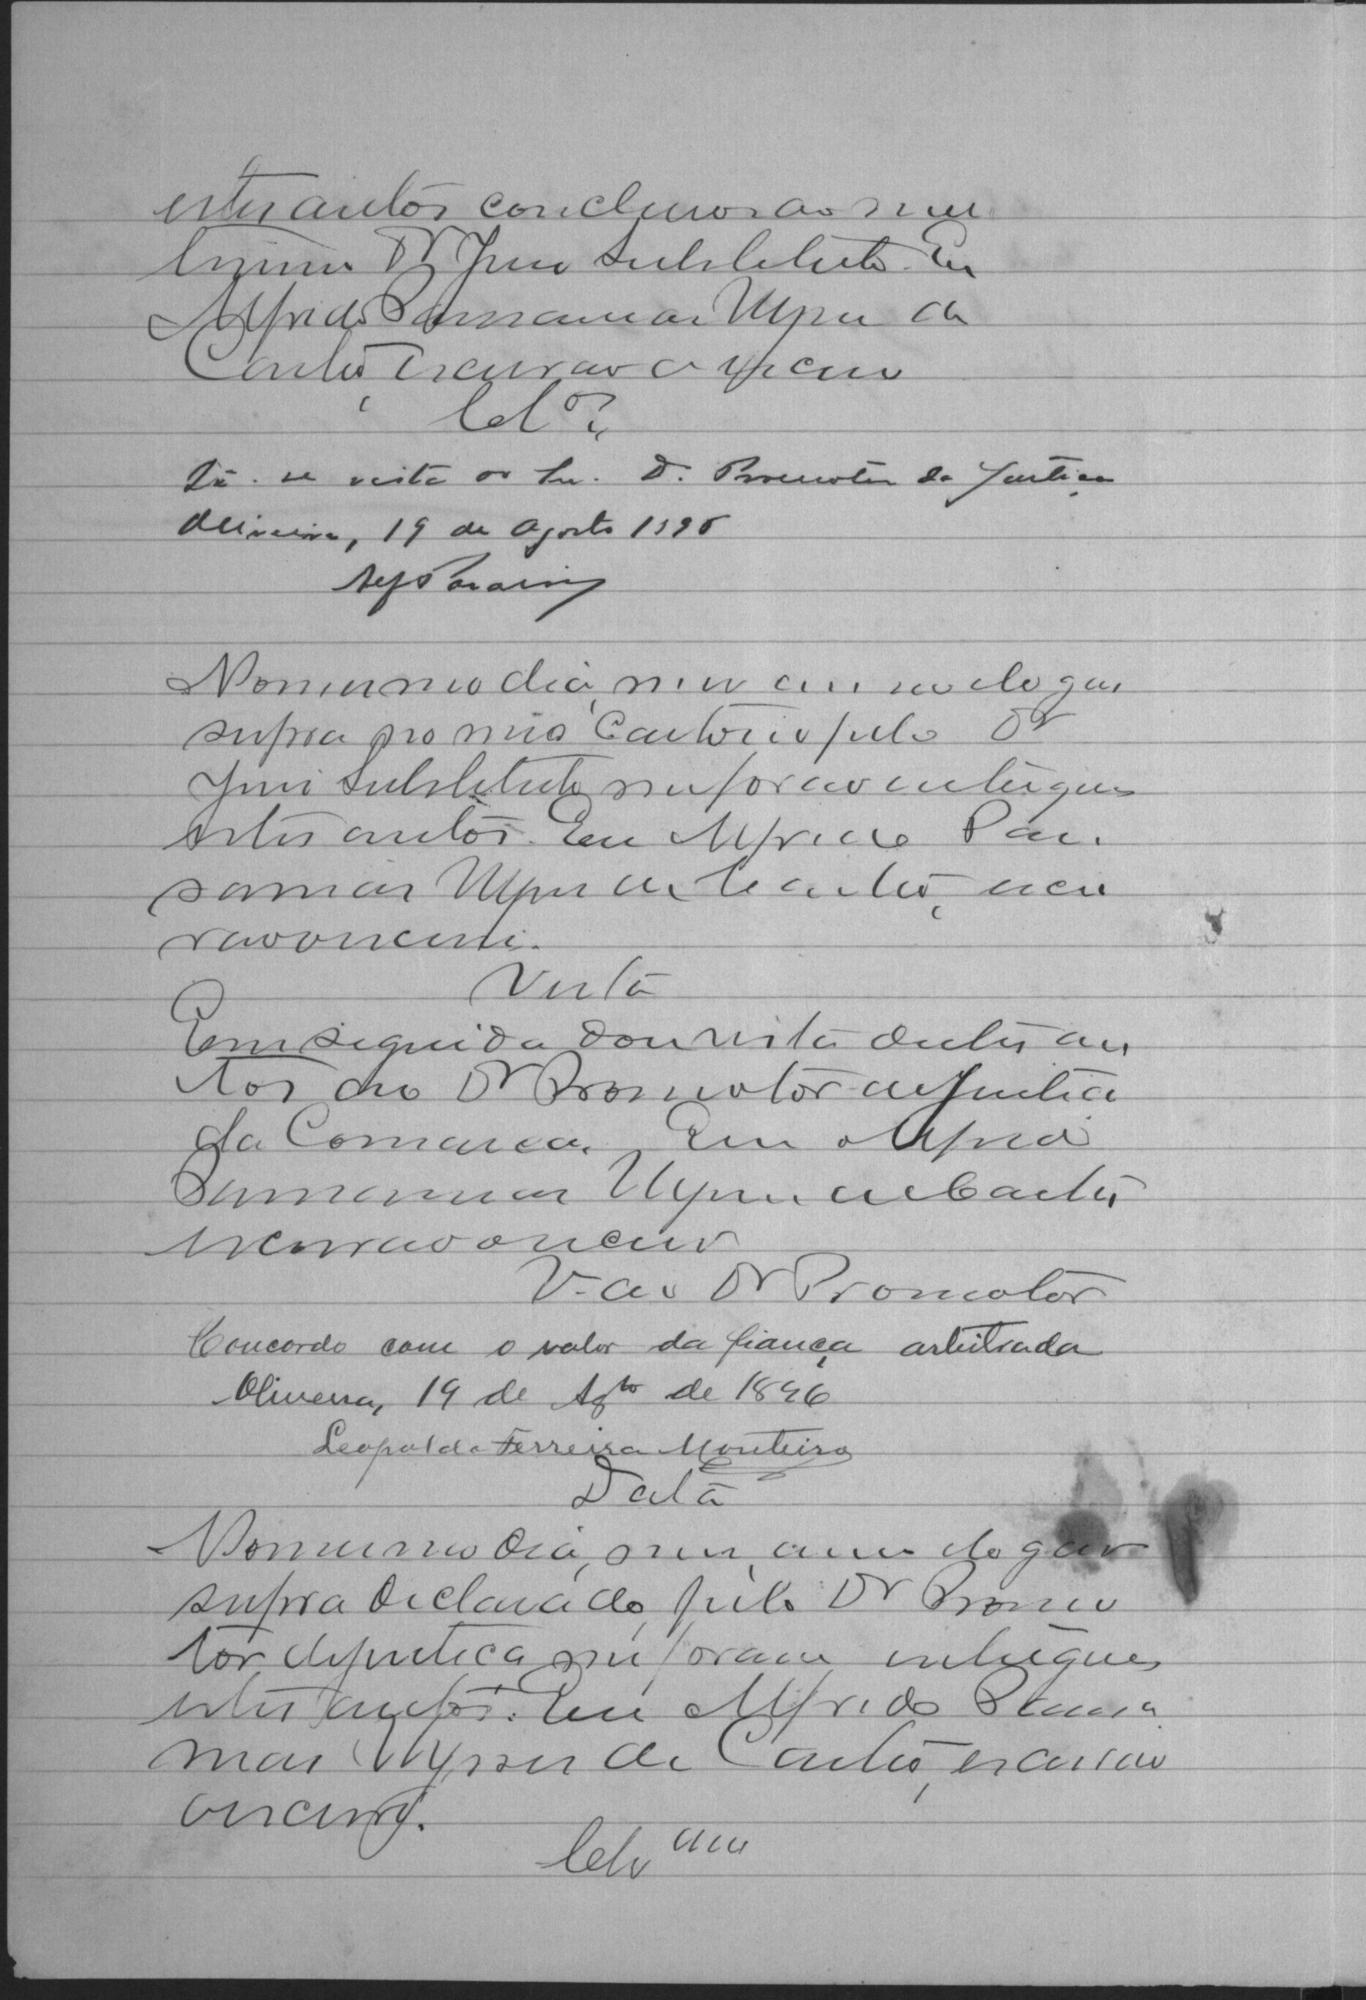 estes autos conclusos ao me
Dr Juiz Substituto. Eu
Alfredo de
Castro, escrivão o escrevi
Cls.
Dê-se vista ao Sr. Dr. Promotor da Justiça
Oliveira, 19 de Agosto 1896
No mesmo dia, mez anno e logar
supra no meu Cartorio pelo Dr
Juiz Substituto me forão entregues
estes autos. Eu Alfredo
de Castro, escri
vão o escrevi.
Vista
Em seguida dou vista destes au
tos ao Dr Promotor de Justiça
da Comarca. Eu Alfredo
de Castro
escrivão o escrevi
V. ao Dr Promotor
Concordo com o valor da fiança arbitrada
Oliveira, 19 de Agto de 1896
Leopoldo Ferreira Monteiro
Data
No mesmo dia, mez, anno e logar
supra declarado, pelo Dr Promo
tor de Justiça me foram entregues
estes autos. Eu Alfredo
de Castro, escrivão
o escrevi.